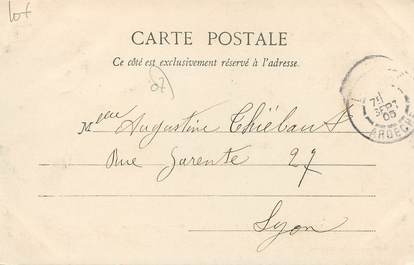 lot
CARTE POSTALE
Ce côté est exclusivement réservé à l'adresse.
07
Melle Augustine Thiébaut
Rue Sarente 27
Lyon
7 SEPT
05
ARDECHE